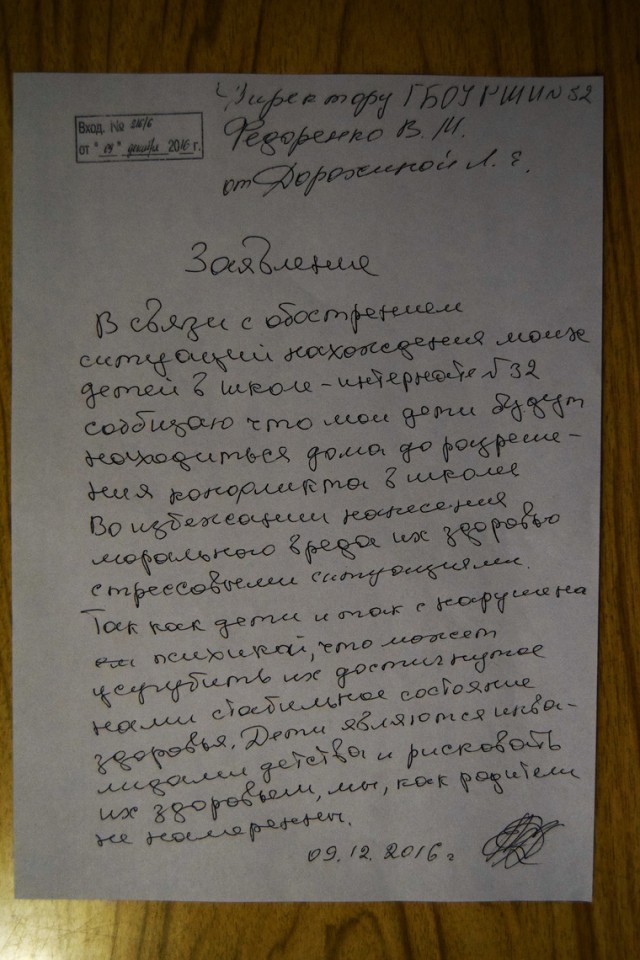 Директору ГБОУ РШИ № 32
Федоренко В. М.
от Дорожиной Л. Е.
Вход. №
от "09" декабря 2016 г.
Заявление
В связи с обострением
ситуаций нахождения моих
детей в школе-интернате № 32
сообщаю что мои дети будут
находиться дома до разреше-
ния конфликта в школе
Во избежании нанесения
морального вреда их здоровью
стрессовыми ситуациями.
Так как дети и так с нарушена
ей психикой, что может
усугубить их достигнутое
нами стабильное состояние
здоровья. Дети являются инва-
лидами детства и рисковать
их здоровьем, мы, как родители
не намеренны.
09.12.2016 г